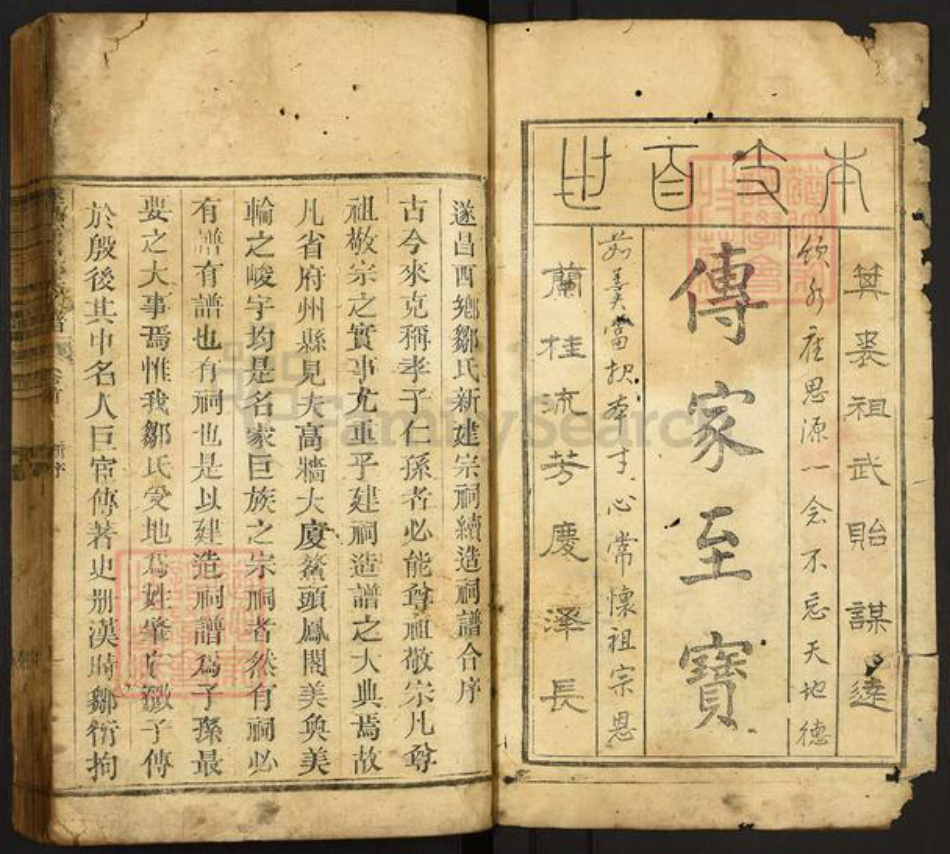 本支百世
箕裘祖武貽謀遠
飲水應思源一念不忘天地德
傳家至寶
為善當報本寸心常懷祖宗恩
蘭桂流芳慶澤長
遂昌西鄉鄒氏新建宗祠續造祠譜合序
古今來克稱孝子仁孫者必能尊祖敬宗凡尊
祖敬宗之實事尤重乎建祠造譜之大典焉故
凡省府州縣見夫高牆大廈鰲頭鳳閣美奐美
輪之峻宇均是名家巨族之宗祠者然有祠必
有譜有譜也有祠也是以建造祠譜為子孫最
要之大事焉惟我鄒氏受地為姓肇自微子傳
於殷後其中名人巨官傳著史册漢時鄒衍拘
FamilySearch